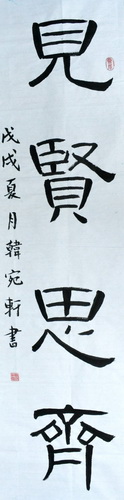 見賢思齊
戊戌夏月韓宛軒書